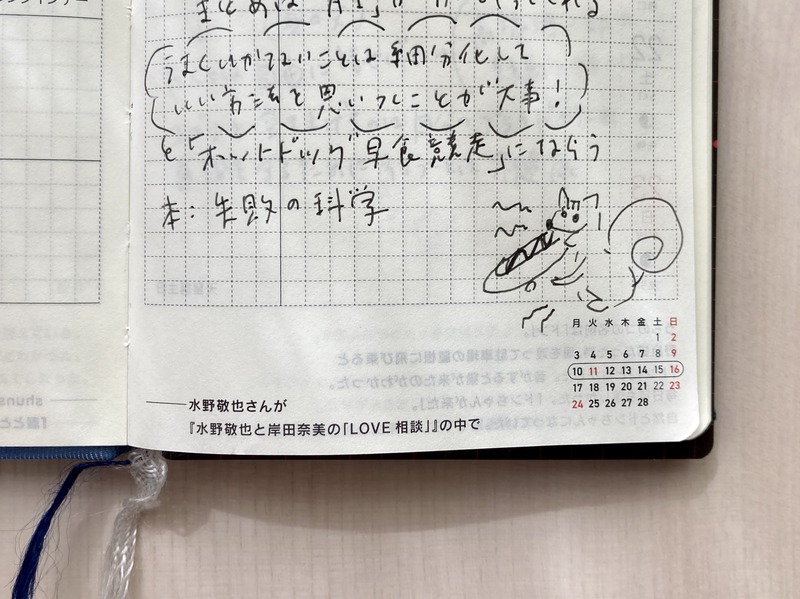 まとめは
うまくいかないことは細分化して
いい方法を思いつくことが大事！
を「ホットドッグ早食競走」にならう
本：失敗の科学
月 火 水 木 金 土 日
1 2
3 4 5 6 7 8 9
10 11 12 13 14 15 16
17 18 19 20 21 22 23
24 25 26 27 28
——水野敬也さんが
『水野敬也と岸田奈美の「LOVE 相談」』の中で